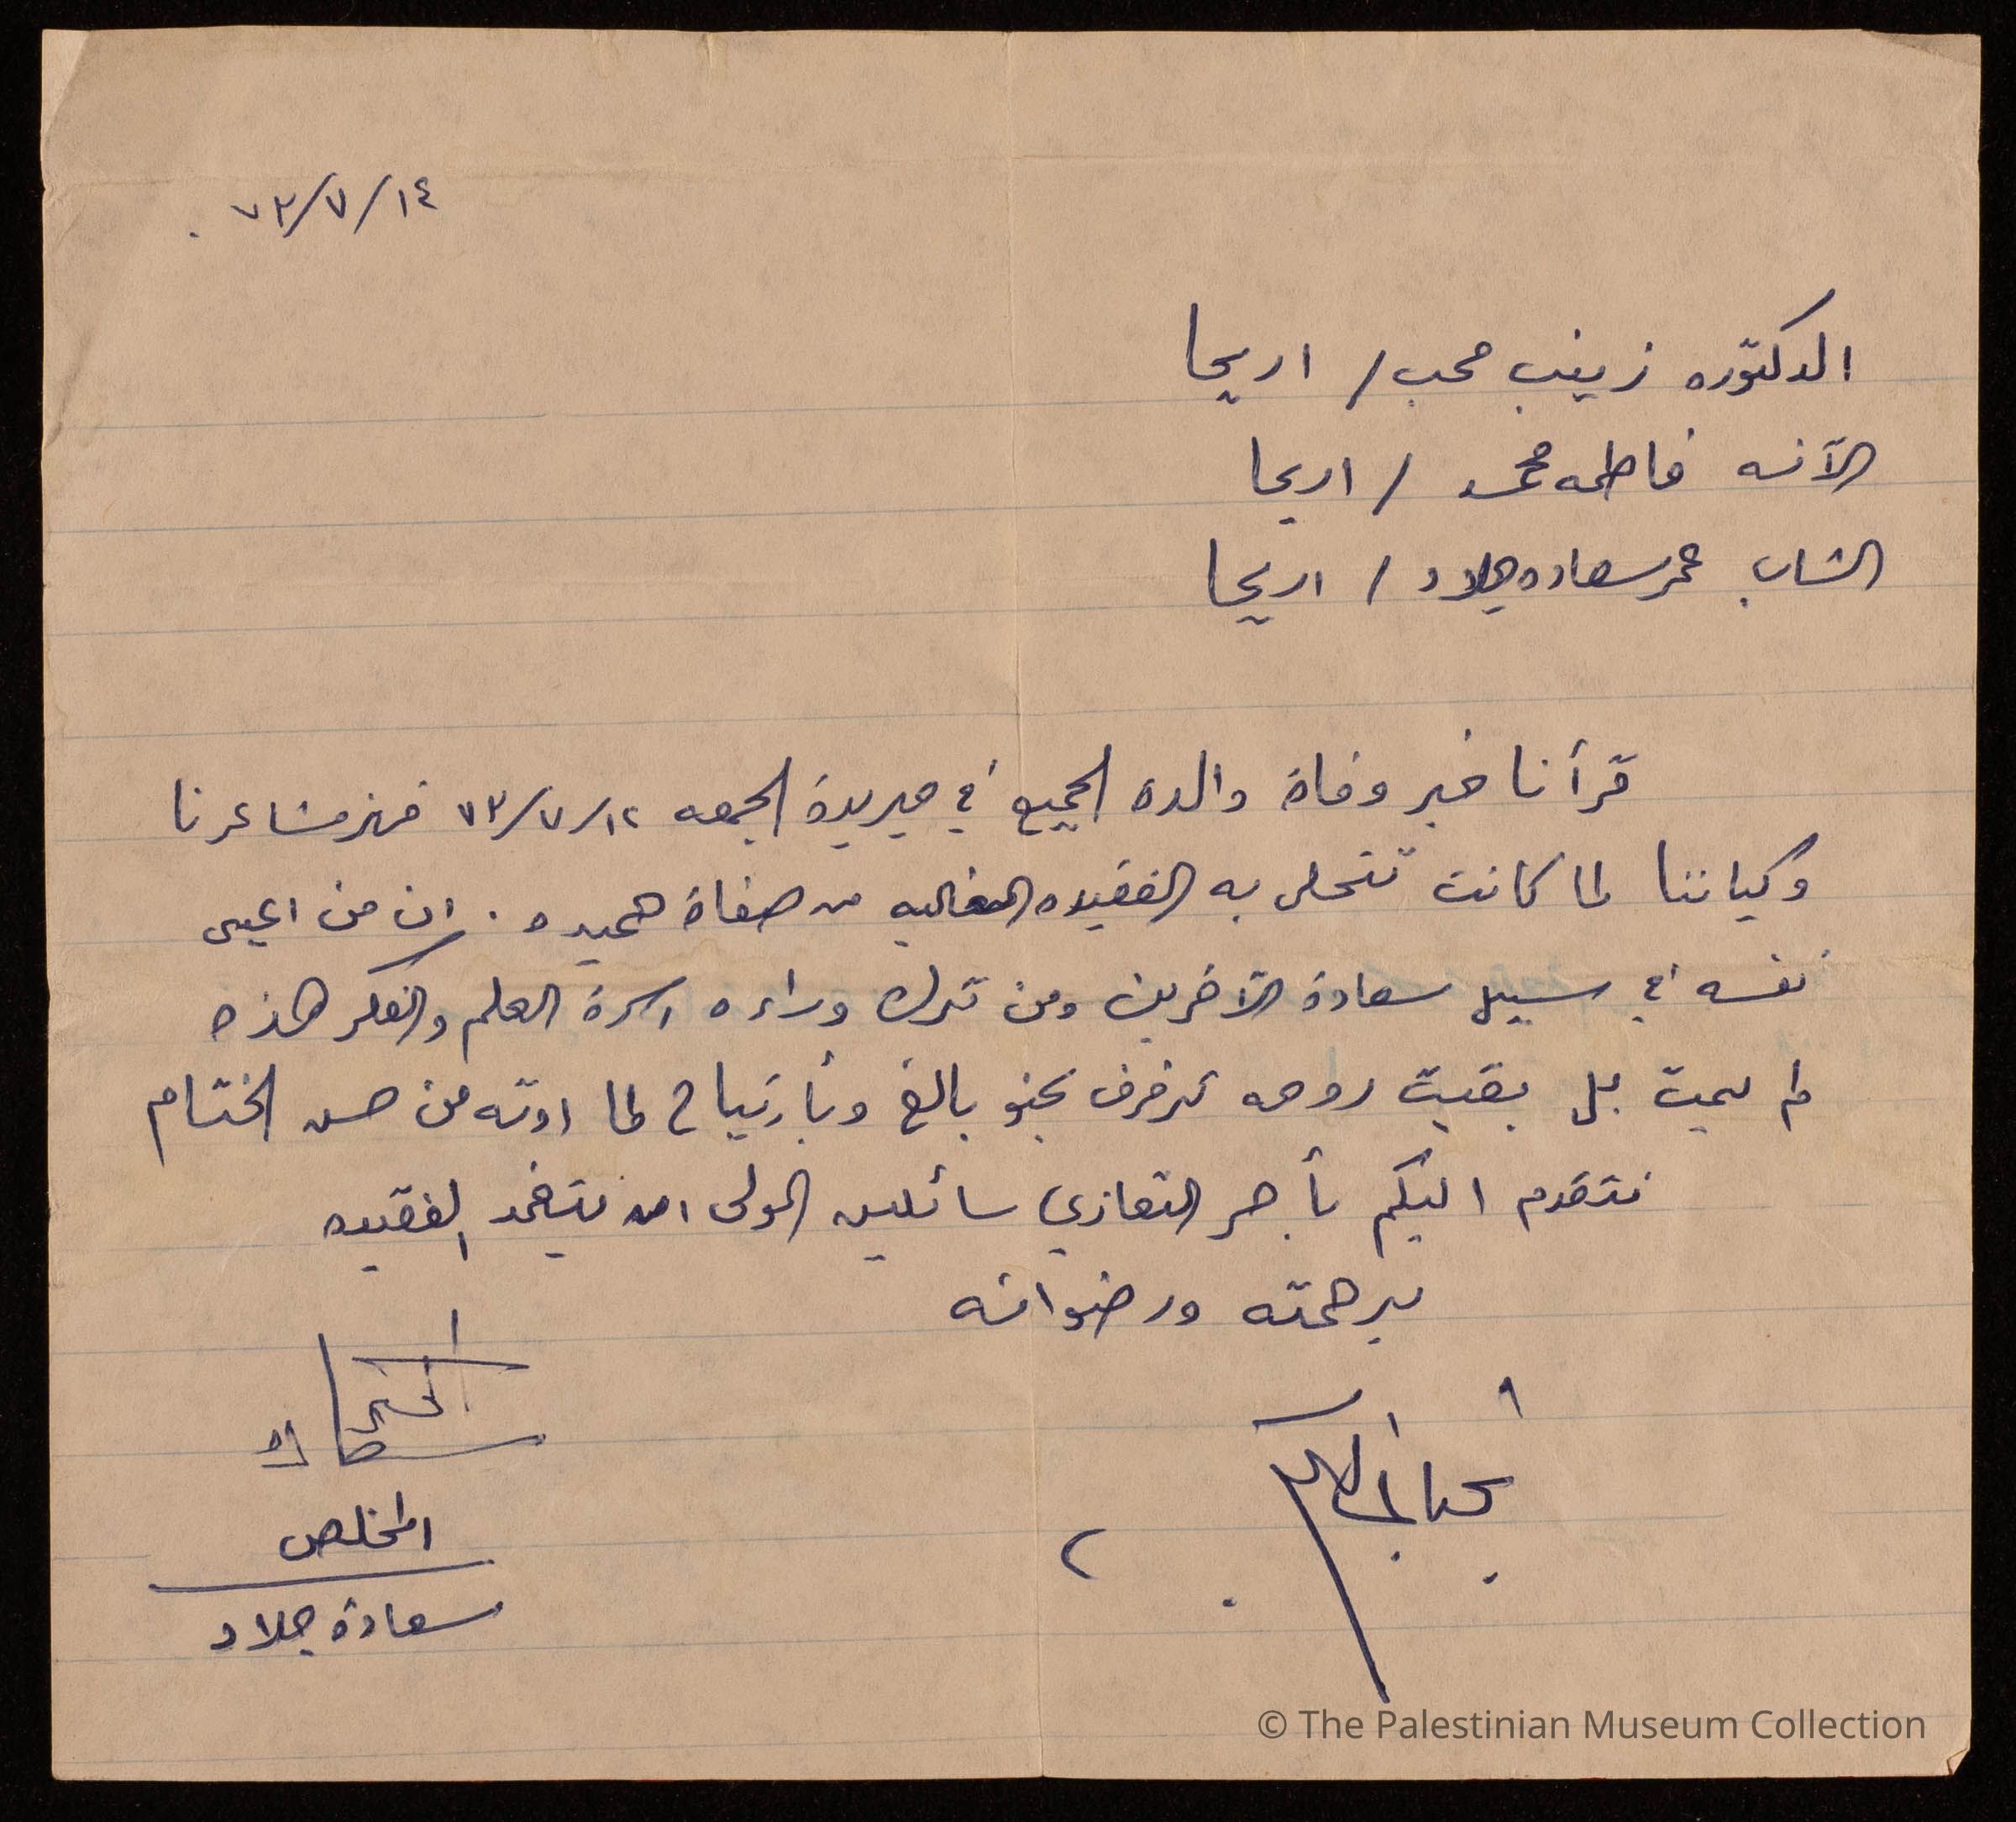 ٧٣/٧/١٤
الدكتوره زينب محب / اريحا
الآنسه فاطمه محمد / اريحا
الشاب عمر سعاده جلاد / اريحا
قرأنا خبر وفاة والدة الجميع في جريدة الجمعه ٧٣/٧/١٢ فهز مشاعرنا
وكياننا لما كانت تتحلى به الفقيده الغاليه من صفاة حميده . ان من اعيى
نفسه في سبيل سعادة الآخرين ومن ترك وراءه اسرة العلم والفكر هذه
لم يميت بل بقيت روحه ترفرف بجو بالغ وبأرتياح لما ادته من حسن الختام
نتقدم اليكم بأحر التعازي سائلين المولى ان يتغمد الفقيده
برحمته ورضوانه
المخلص
سعادة جلاد
© The Palestinian Museum Collection